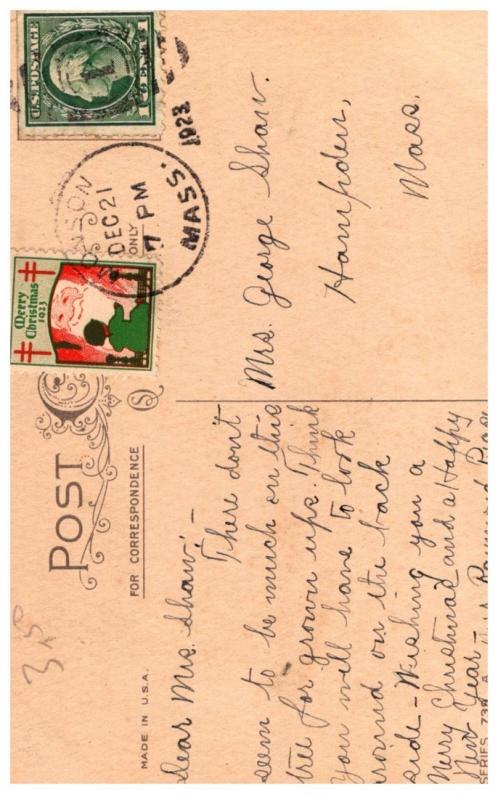 U.S. POSTAGE
1 CENT 1
MONSON
DEC 21
7 PM
1923
MASS.
Merry
Christmas
1923
POST
ONLY
FOR CORRESPONDENCE
MADE IN U.S.A.
SERIES 739 A
35
Mrs. George Shaw.
Hampden,
Mass.
Dear Mrs. Shaw:-
There don't
seem to be much on this
tree for grown ups. Think
you will have to look
around on the back
side - Wishing you a
Merry Christmas and a Happy
New Year -